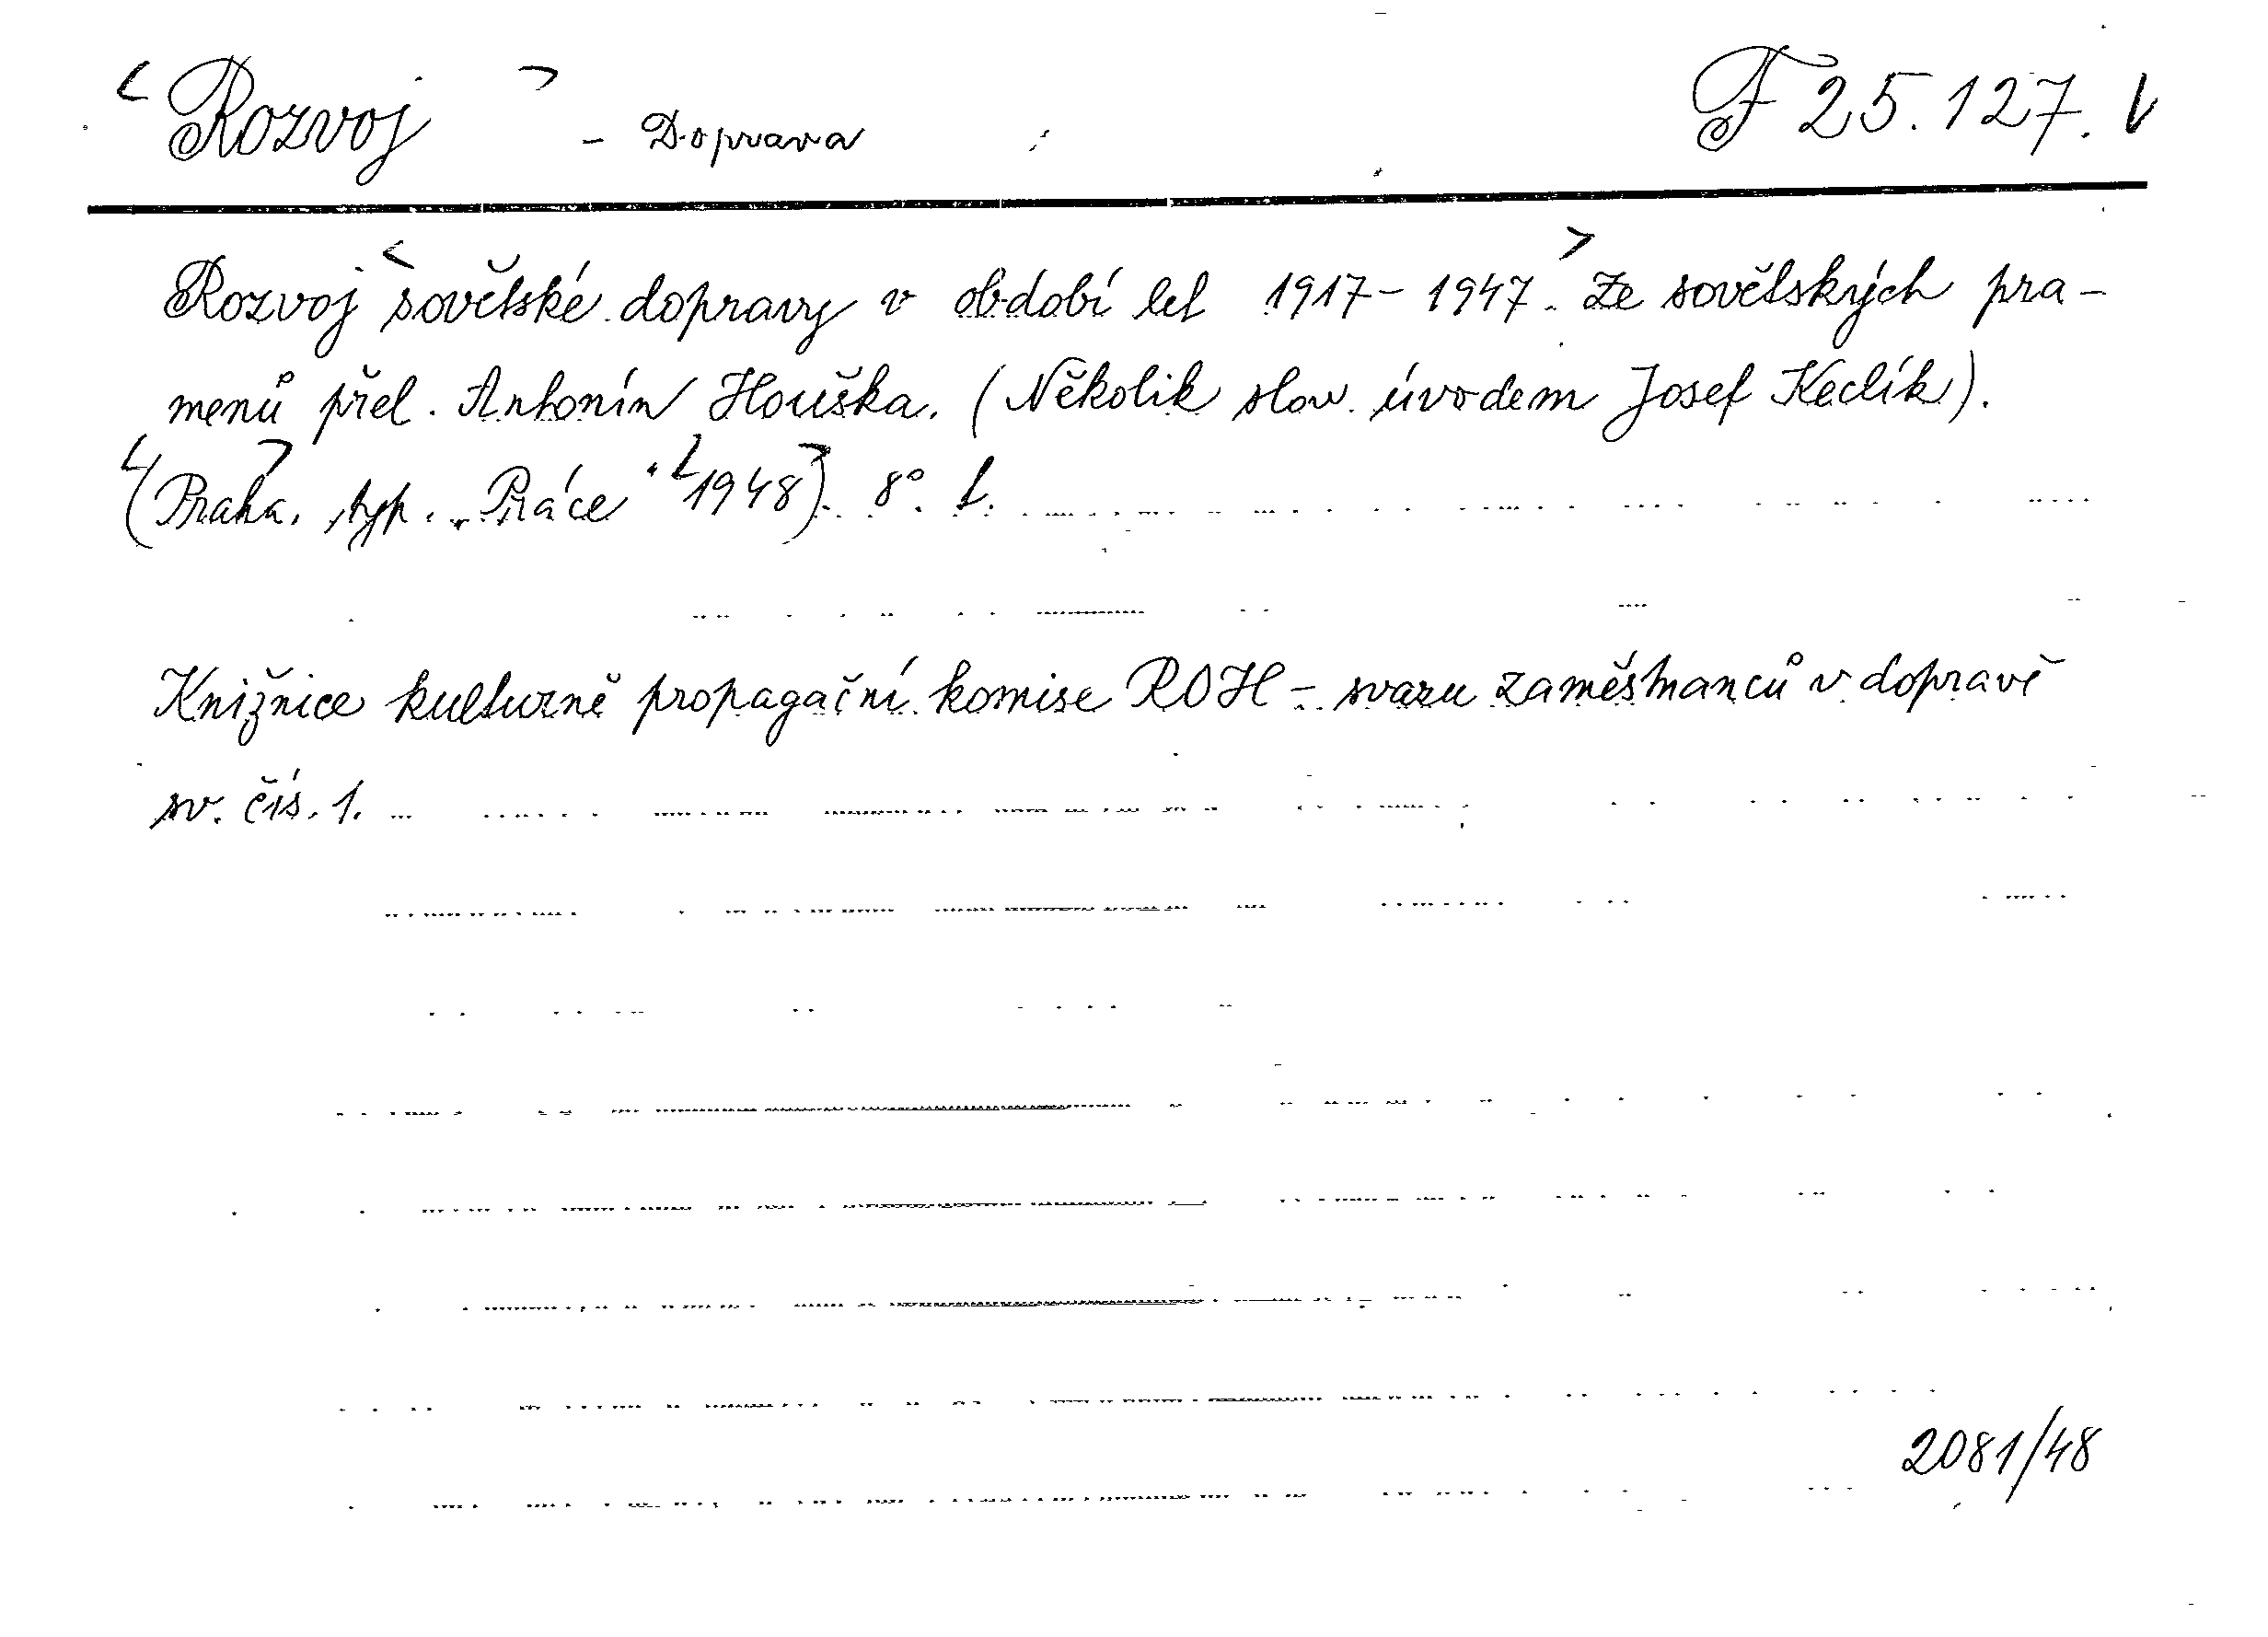 Rozvoj - Doprava F 25.127.
Rozvoj sovětské dopravy v období let 1917-1947. Ze sovětských pra-
menů přel. Antonín Houška. (Několik slov úvodem Josef Keclík).
(Praha, typ. "Práce" 1948). 8°.
Knižnice kulturně propagační komise ROH - svazu zaměstnanců v dopravě
sv. čís. 1.
2081/48